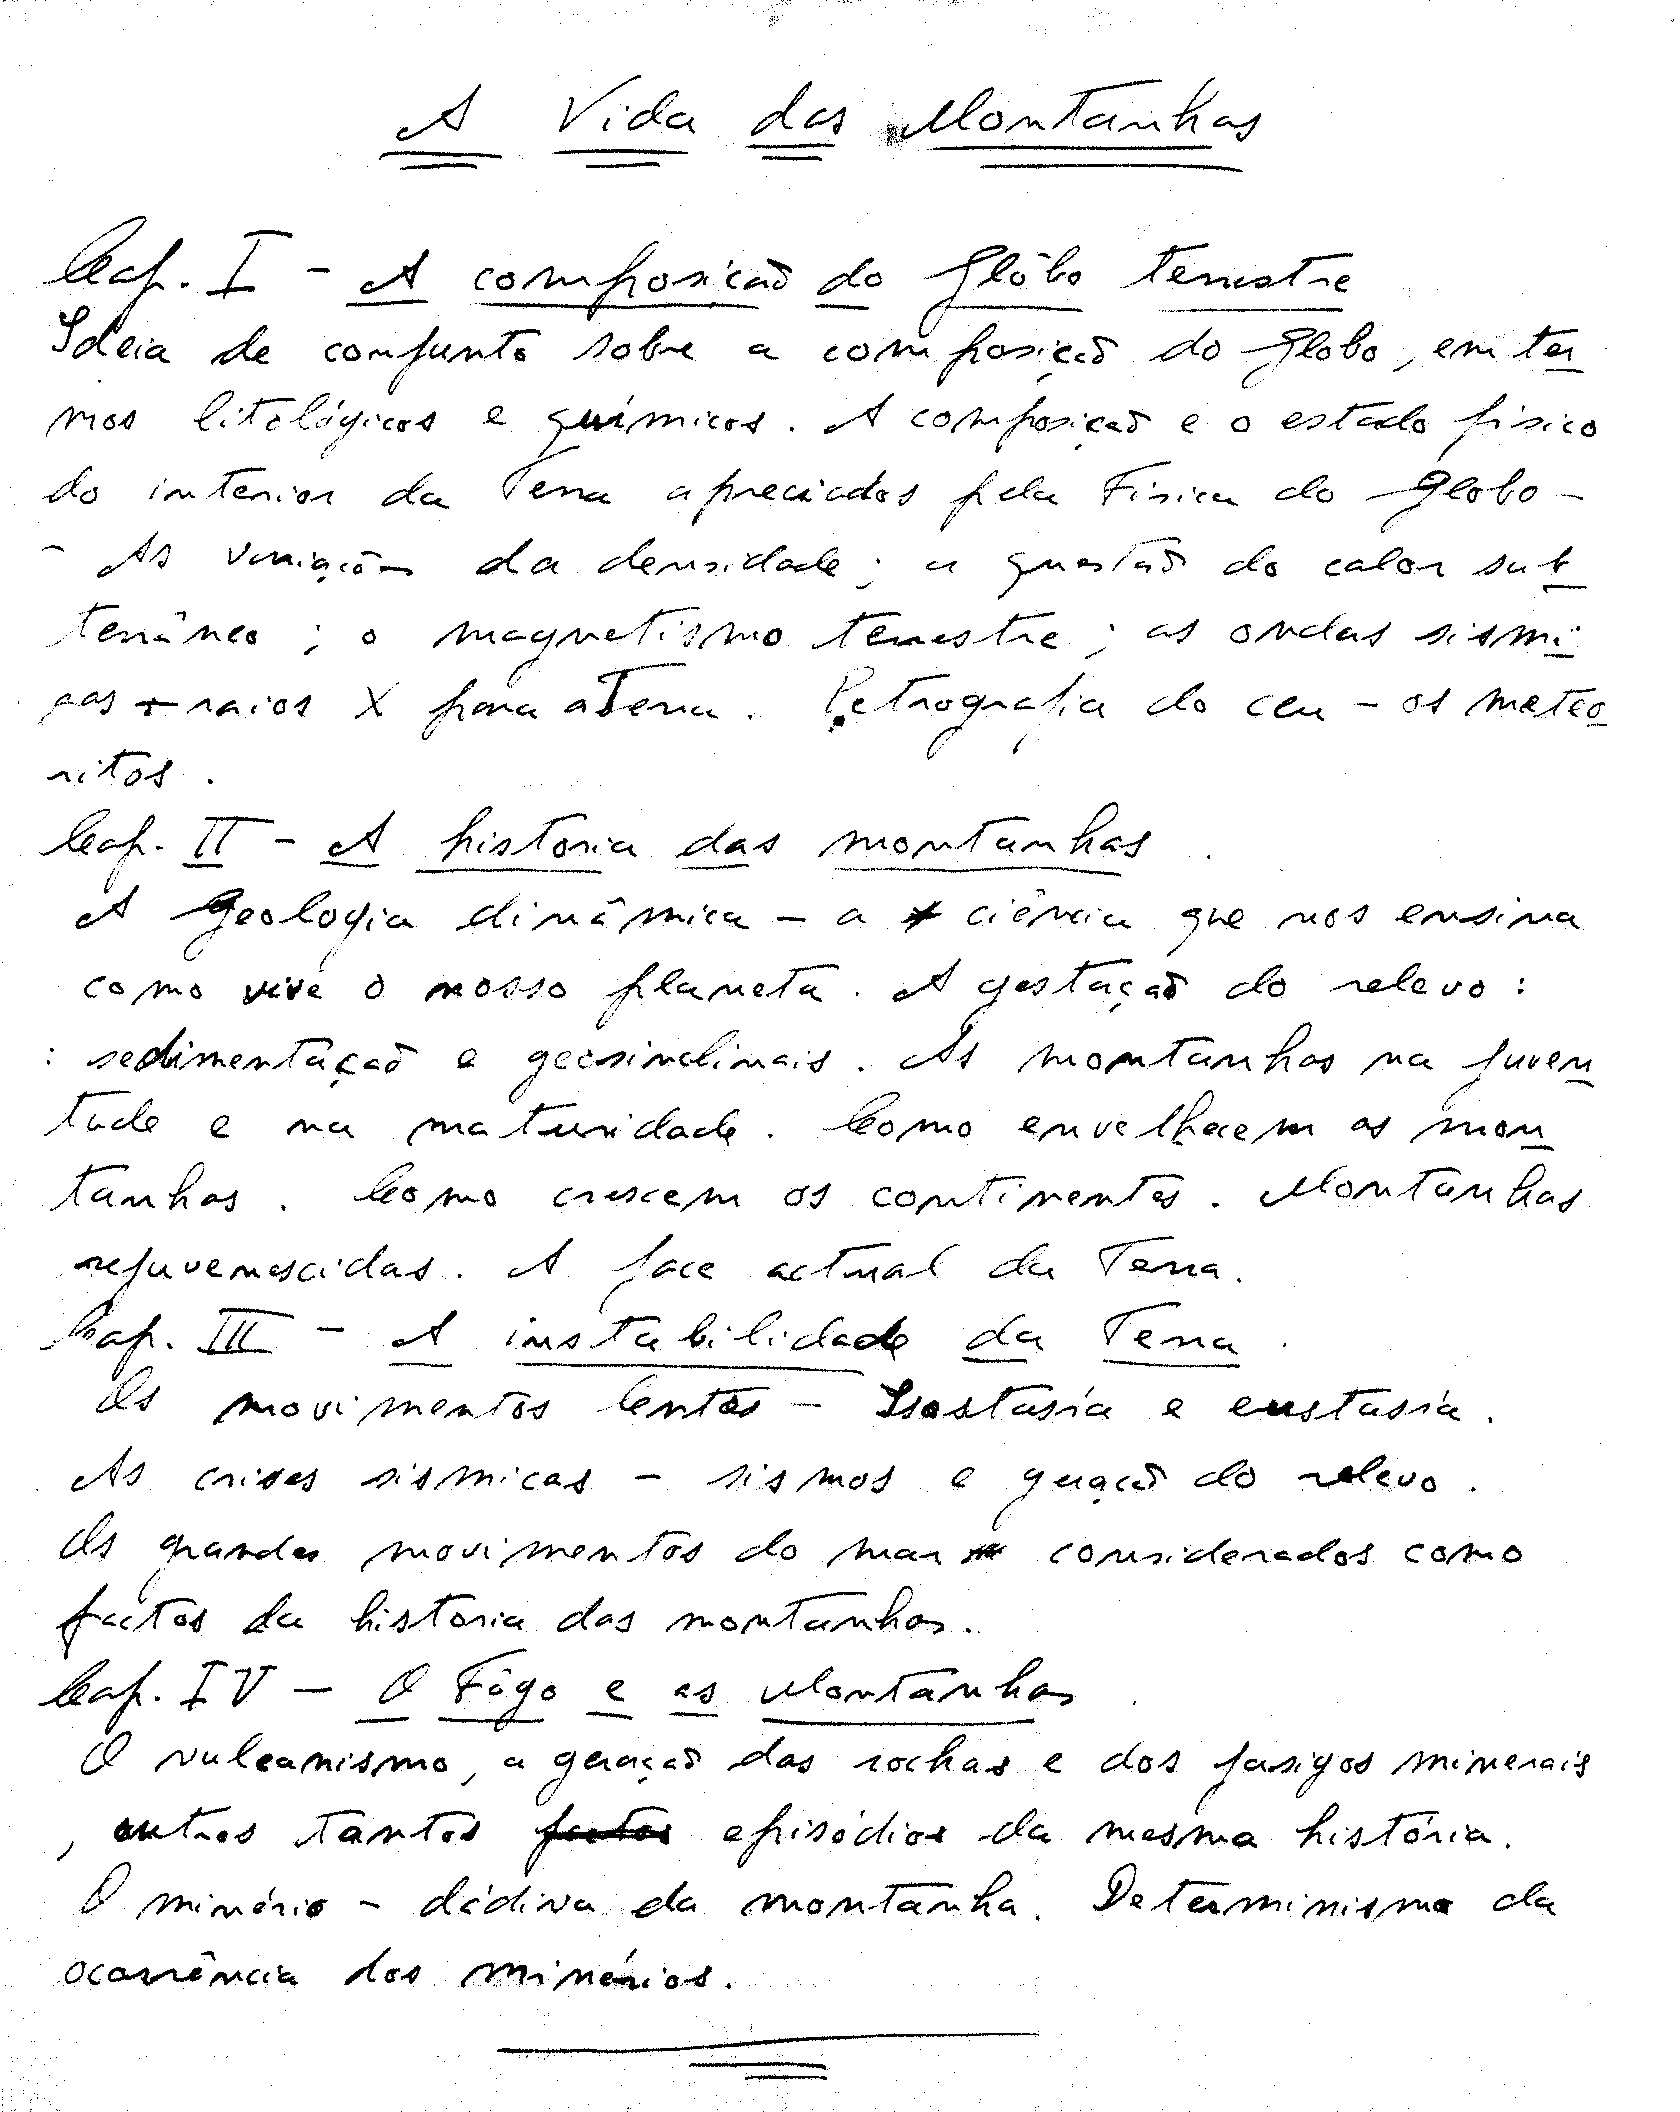 A Vida das Montanhas
Cap. I - A composição do Glôbo terrestre
Ideia de conjunto sobre a composição do Globo, em ter
mos litológicos e químicos. A composição e o estado físico
do interior da Terra apreciados pela Física do Globo -
- As variações da densidade; a questão do calor sub
terrâneo; o magnetismo terrestre; as ondas sísmi
cas - raios X para a Terra. Petrografia do ceu - os meteo
ritos.
Cap. II - A historia das montanhas
A Geologia dinâmica - a ciência que nos ensina
como vive o nosso planeta. A gestação do relevo:
: sedimentação e geosinclinais. As montanhas na juven
tude e na maturidade. Como envelhecem as mon
tanhas. Como crescem os continentes. Montanhas
rejuvenescidas. A face actual da Terra.
Cap. III - A instabilidade da Terra.
Os movimentos lentos - Isostasía e eustasía.
As crises sísmicas - sismos e geração do relevo.
Os grandes movimentos do mar considerados como
factos da historia das montanhas.
Cap. IV - O Fôgo e as Montanhas
O vulcanismo, a geração das rochas e dos jasigos minerais
, outros tantos factos episódios da mesma história.
O minério - dádiva da montanha. Determinismo da
ocorrência dos minérios.